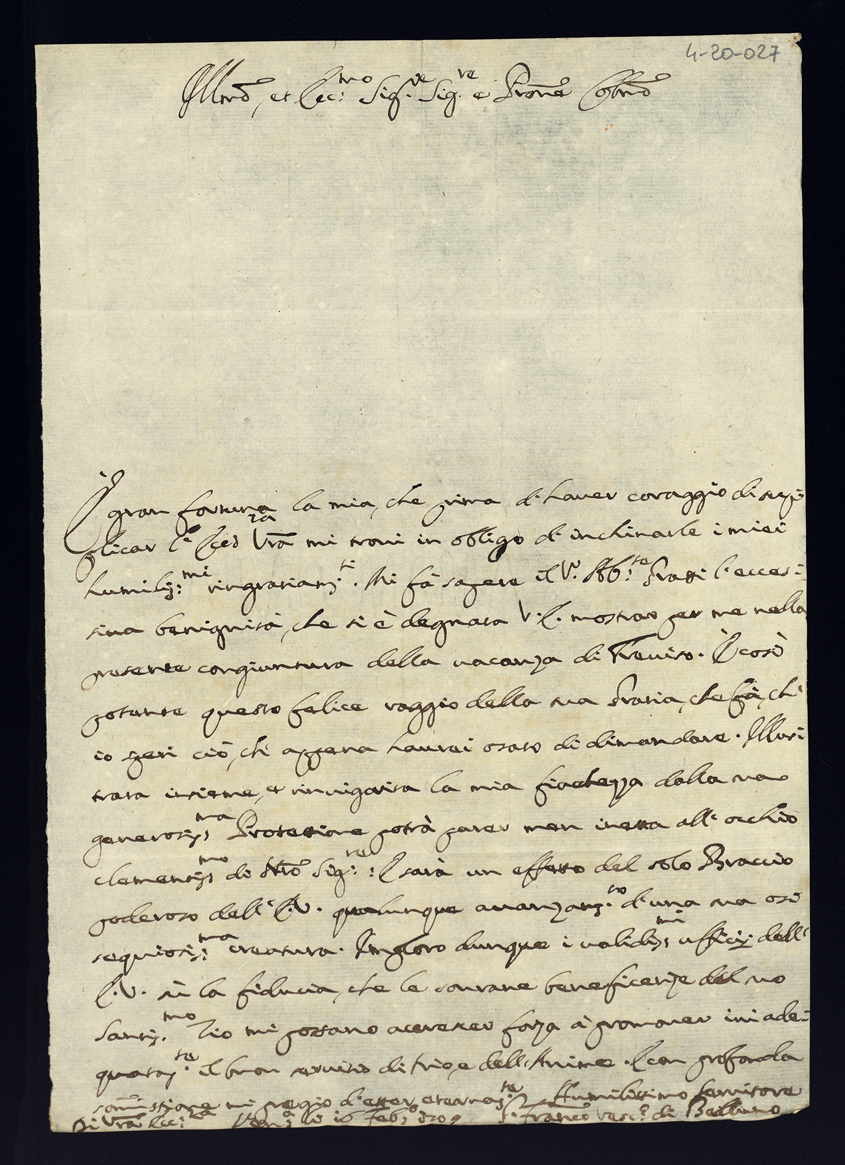 4-20-027
Illmo, et Ecc:mo Sig.re Sig.re e Prone Colmo
È gran fortuna la mia, che prima di haver coraggio di sup=
plicar l' Ecc.za Vra mi trovi in obligo di inchinarle i miei
humiliss:mi ringratiam.ti. Mi fà sapere il V.o Ab:te Grassi l'ecces=
siva benignità, che si è degnata V. E. mostrar per me nella
presente congiuntura della vacanza di Treviso. È così
potente questo felice raggio della sua Gratia, che fà, ch'
io speri ciò, ch' appena haurei osato di dimandare. Illust
rata insieme, et rinvigorita la mia fiachezza dalla sua
generosiss:ma Protettione potrà parer men inetta all' occhio
clementiss:mo di Nro Sig.re: E sarà un effetto del solo Braccio
poderoso dell' E. V. qualunque avanzam.to d'una sua os=
sequiosis:ma creatura. Imploro dunque i validiss:mi ufficij dell'
E. V. sù la fiducia, che le sourane beneficenze del suo
Santiss.mo Zio mi possano accrescer forza à promover inade=
quatam.te il buon servitio di Dio, e dell' Anime. E con profonda
somissione mi pregio d'esser eternam.te Humilissimo Servitore
Di Vra Ecc:za li 16 Feb:o 1709 Franco vesc.o di Belluno